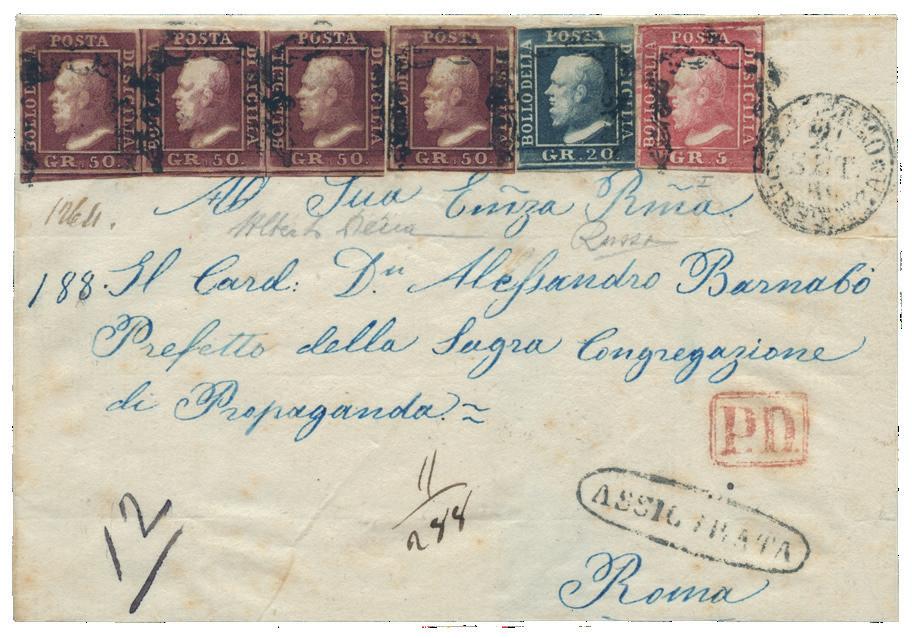 POSTA BOLLO DELLA DI SICILIA GR. 50.
POSTA BOLLO DELLA DI SICILIA GR. 50.
POSTA BOLLO DELLA DI SICILIA GR. 50.
POSTA BOLLO DELLA DI SICILIA GR. 50.
POSTA BOLLO DELLA DI SICILIA GR. 20.
POSTA BOLLO DELLA DI SICILIA GR. 5
SET.
I
A Sua Emza Rma.
1264.
Alberto Diena
Russo
188. Il Card: Dn Alessandro Barnabò
Prefetto della Sagra Congregazione
di Propaganda.
P.D.
11
288
ASSICURATA
12
Roma